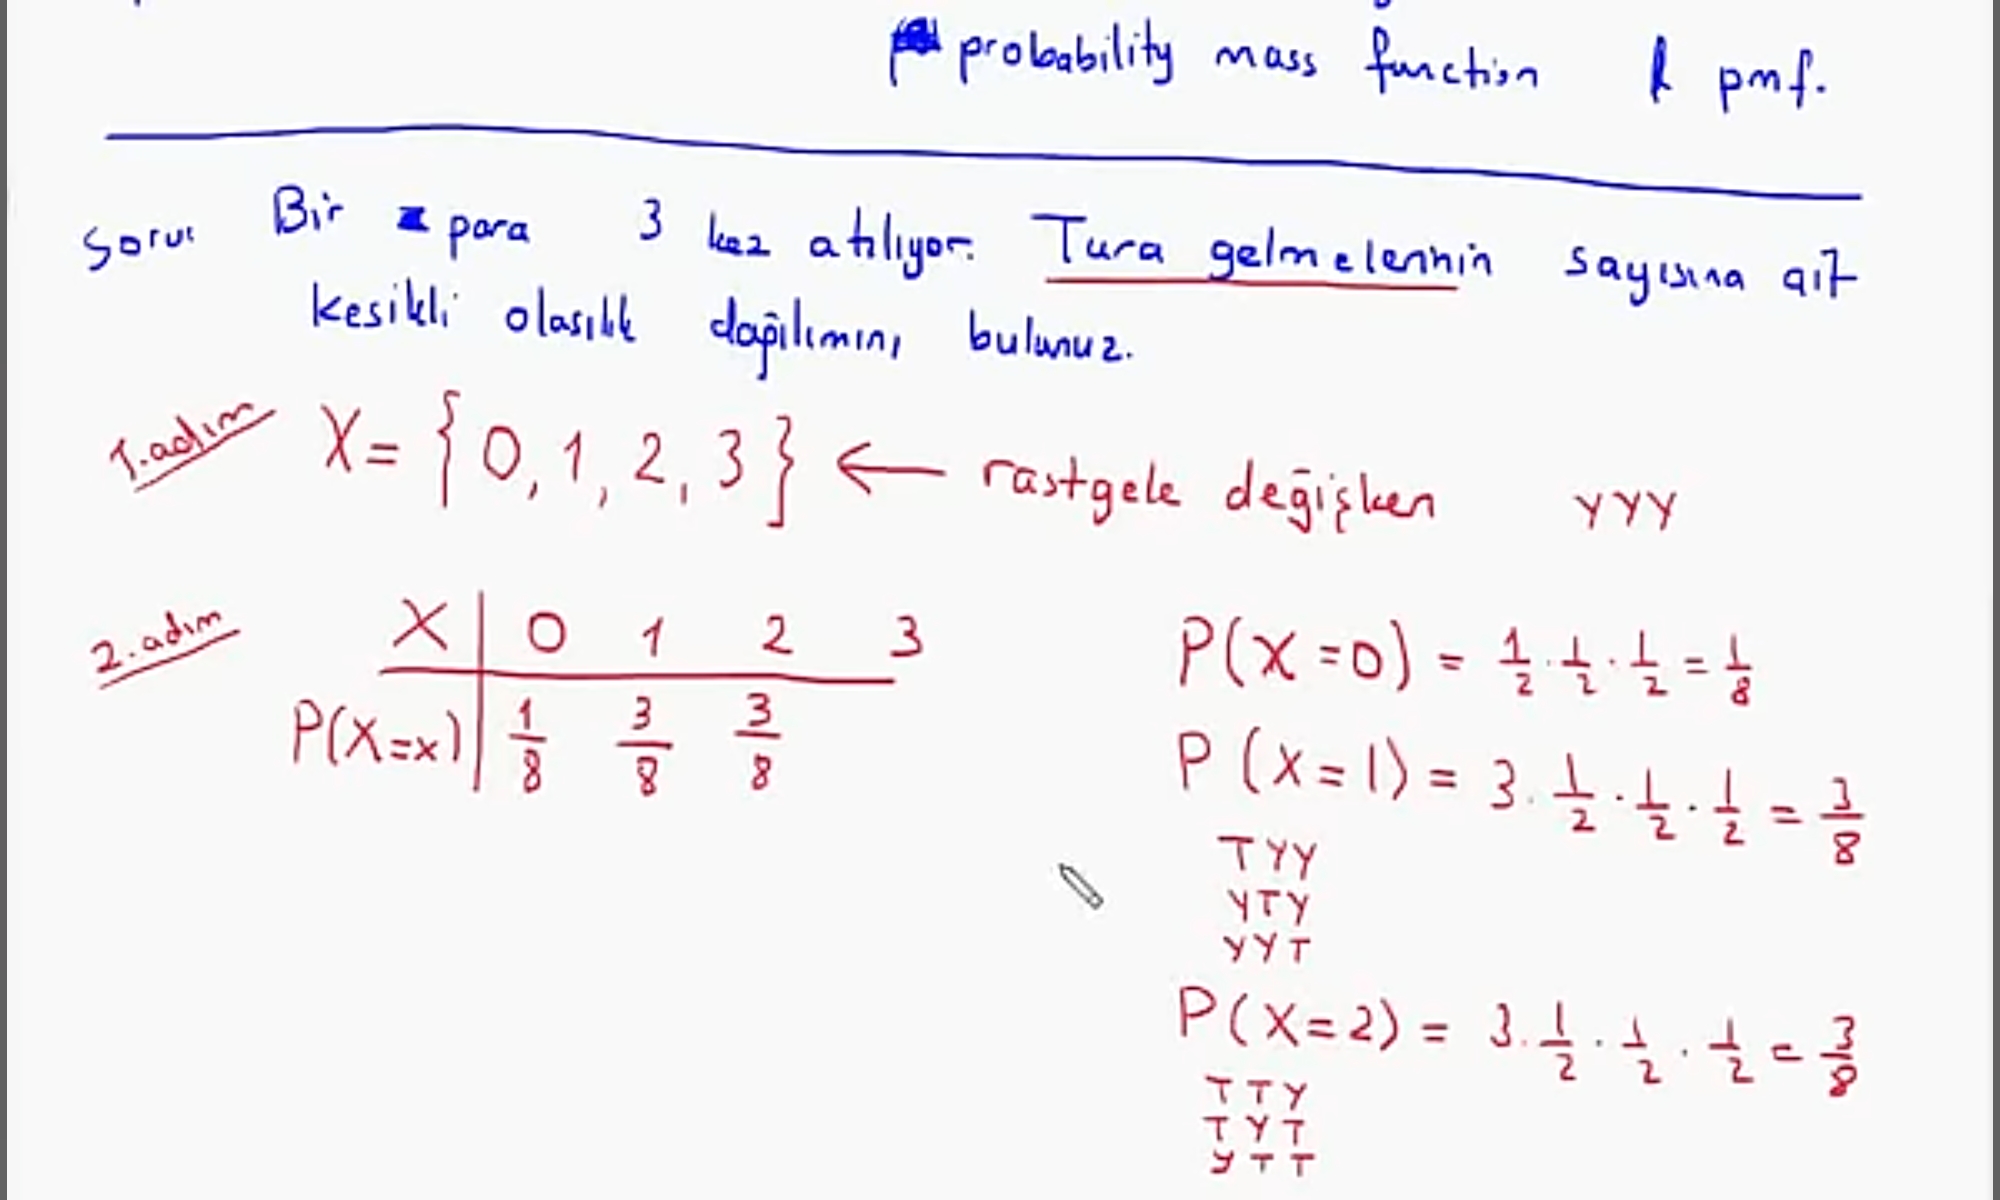 probability mass function pmf.
Soru: Bir para 3 kez atılıyor. Tura gelmelerinin sayısına ait
kesikli olasılık dağılımını bulunuz.
1.adım X = {0, 1, 2, 3} ← rastgele değişken YYY
2.adım X | 0 1 2 3
P(X=x) | 1/8 3/8 3/8
P(X=0) = 1/2 . 1/2 . 1/2 = 1/8
P(X=1) = 3 . 1/2 . 1/2 . 1/2 = 3/8
TYY
YTY
YYT
P(X=2) = 3 . 1/2 . 1/2 . 1/2 = 3/8
TTY
TYT
YTT